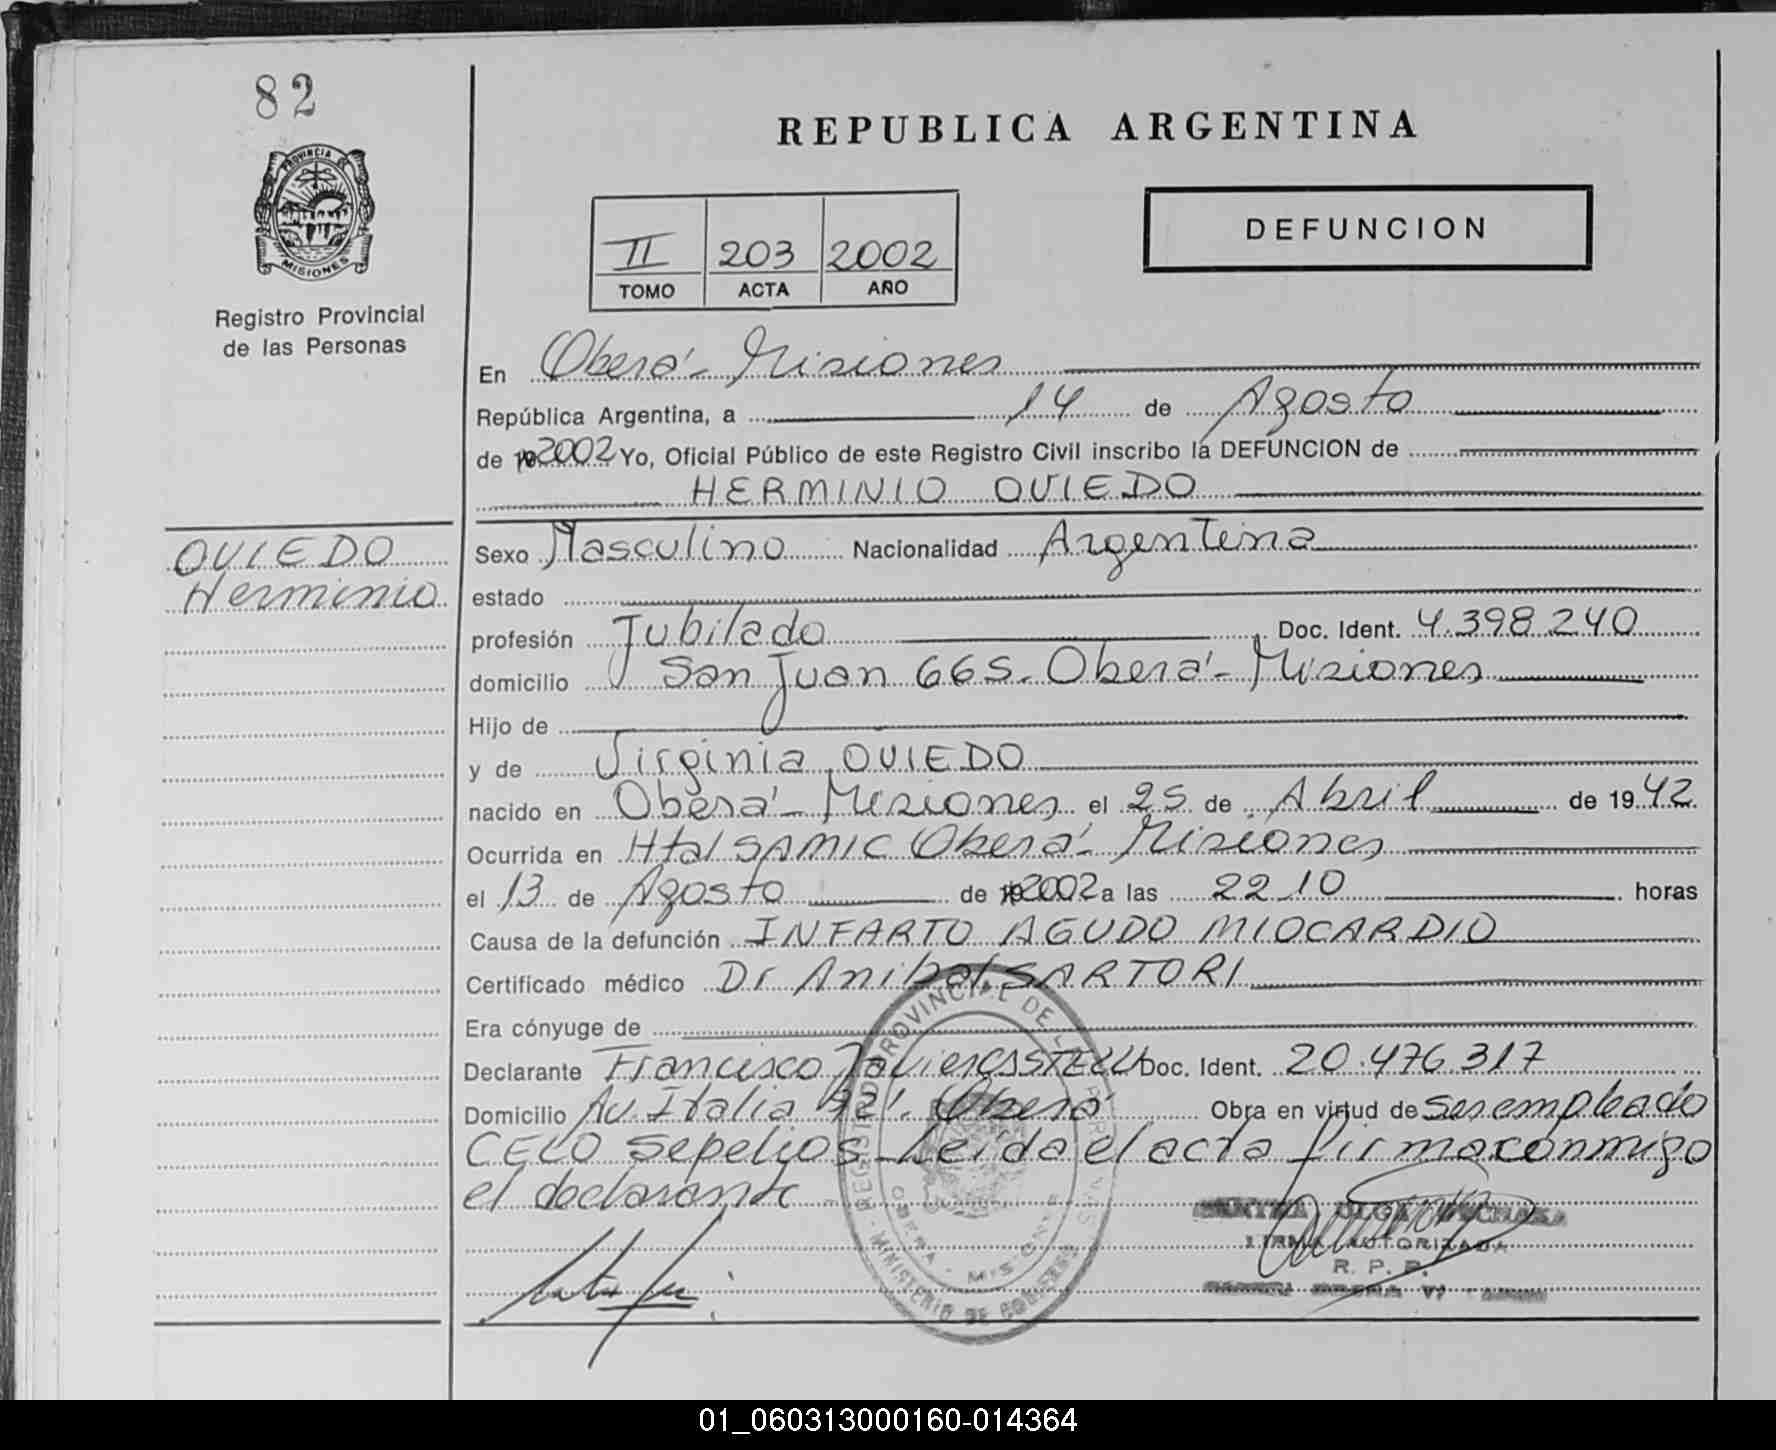 82
PROVINCIA DE
MISIONES
Registro Provincial
de las Personas
REPUBLICA ARGENTINA
II 203 2002
TOMO ACTA AÑO
DEFUNCION
En Oberá - Misiones
República Argentina, a 14 de Agosto
de 19 2002 Yo, Oficial Público de este Registro Civil inscribo la DEFUNCION de
HERMINIO OVIEDO
OVIEDO
Herminio
Sexo Masculino Nacionalidad Argentina
estado
profesión Jubilado Doc. Ident. 4.398.240
domicilio San Juan 665 - Oberá - Misiones
Hijo de
y de Virginia OVIEDO
nacido en Oberá - Misiones el 25 de Abril de 1942
Ocurrida en Htal SAMIC Oberá - Misiones
el 13 de Agosto de 19 2002 a las 22 10 horas
Causa de la defunción INFARTO AGUDO MIOCARDIO
Certificado médico Dr Anibal SARTORI
Era cónyuge de
Declarante Francisco Javier CASTELLI Doc. Ident. 20.476.317
Domicilio Av. Italia Oberá Obra en virtud de ser empleado
CELO Sepelios - Leida el acta firma conmigo
el declarante
REGISTRO PROVINCIAL DE LAS PERSONAS
OBERA - MISIONES
MINISTERIO DE GOBIERNO
OLGA
FIRMA AUTORIZADA
R. P. P.
01_060313000160-014364